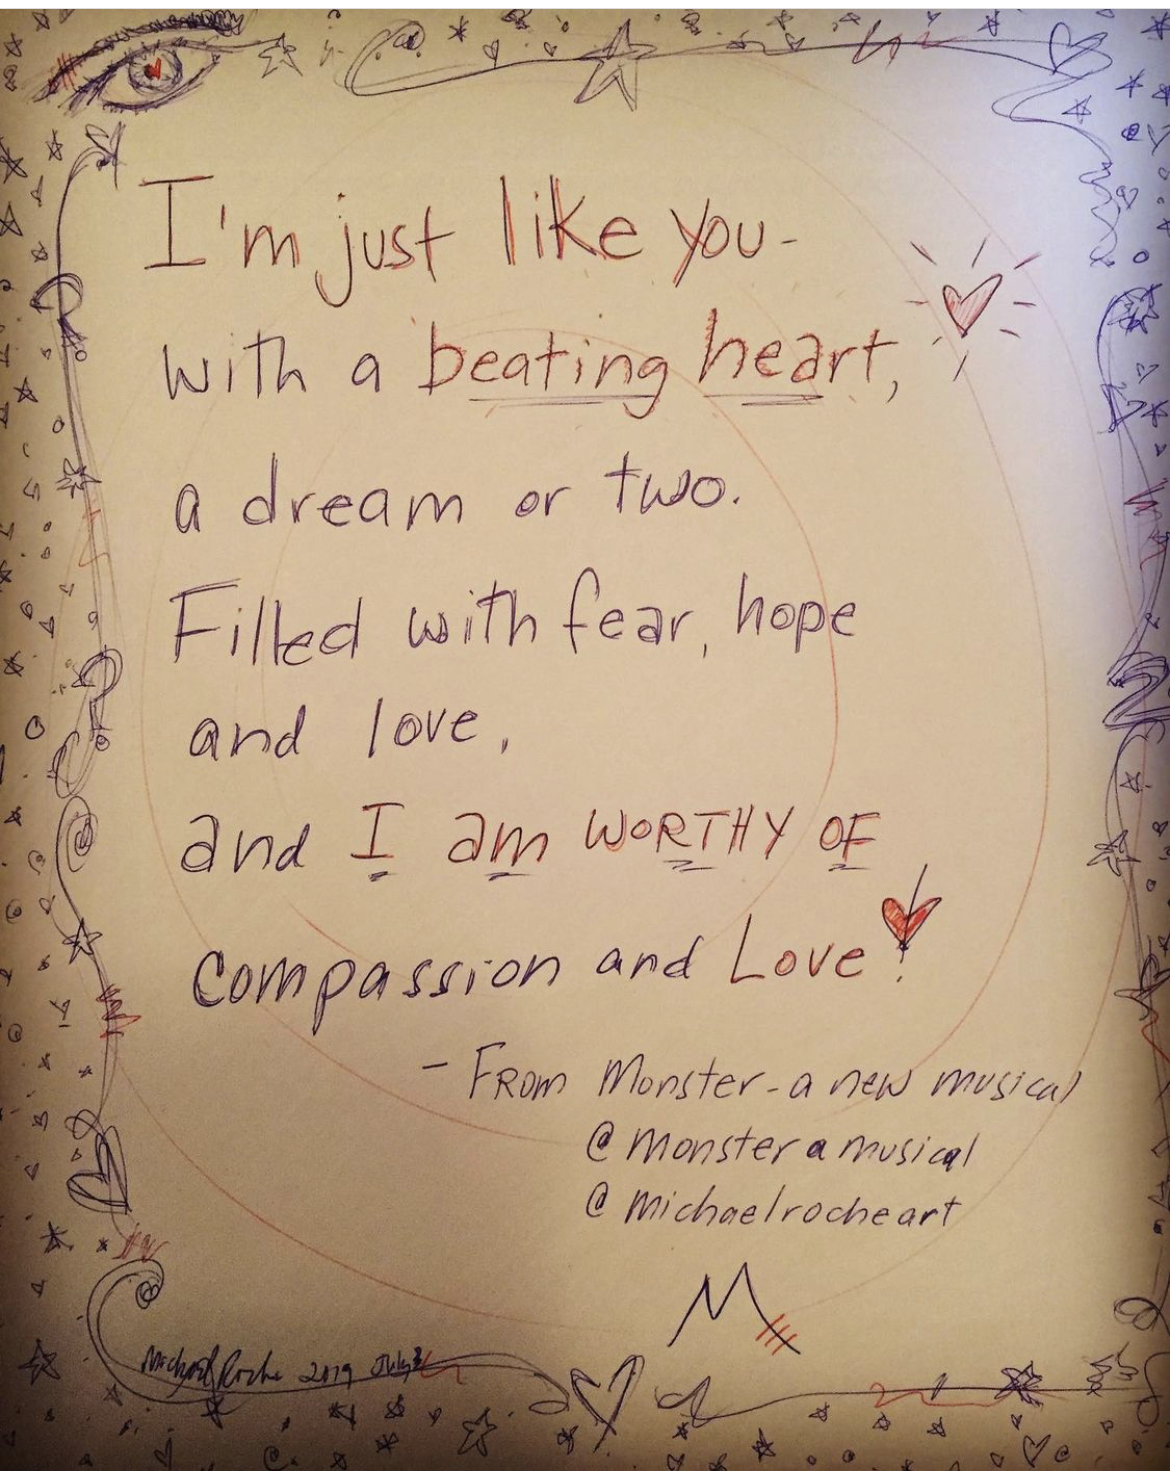 I'm just like you-
with a beating heart,
a dream or two.
Filled with fear, hope
and love,
and I am WORTHY OF
compassion and Love!
- FROM Monster - a new musical
@monsteramusical
@michaelrocheart
M
Michael Roche 2019 July